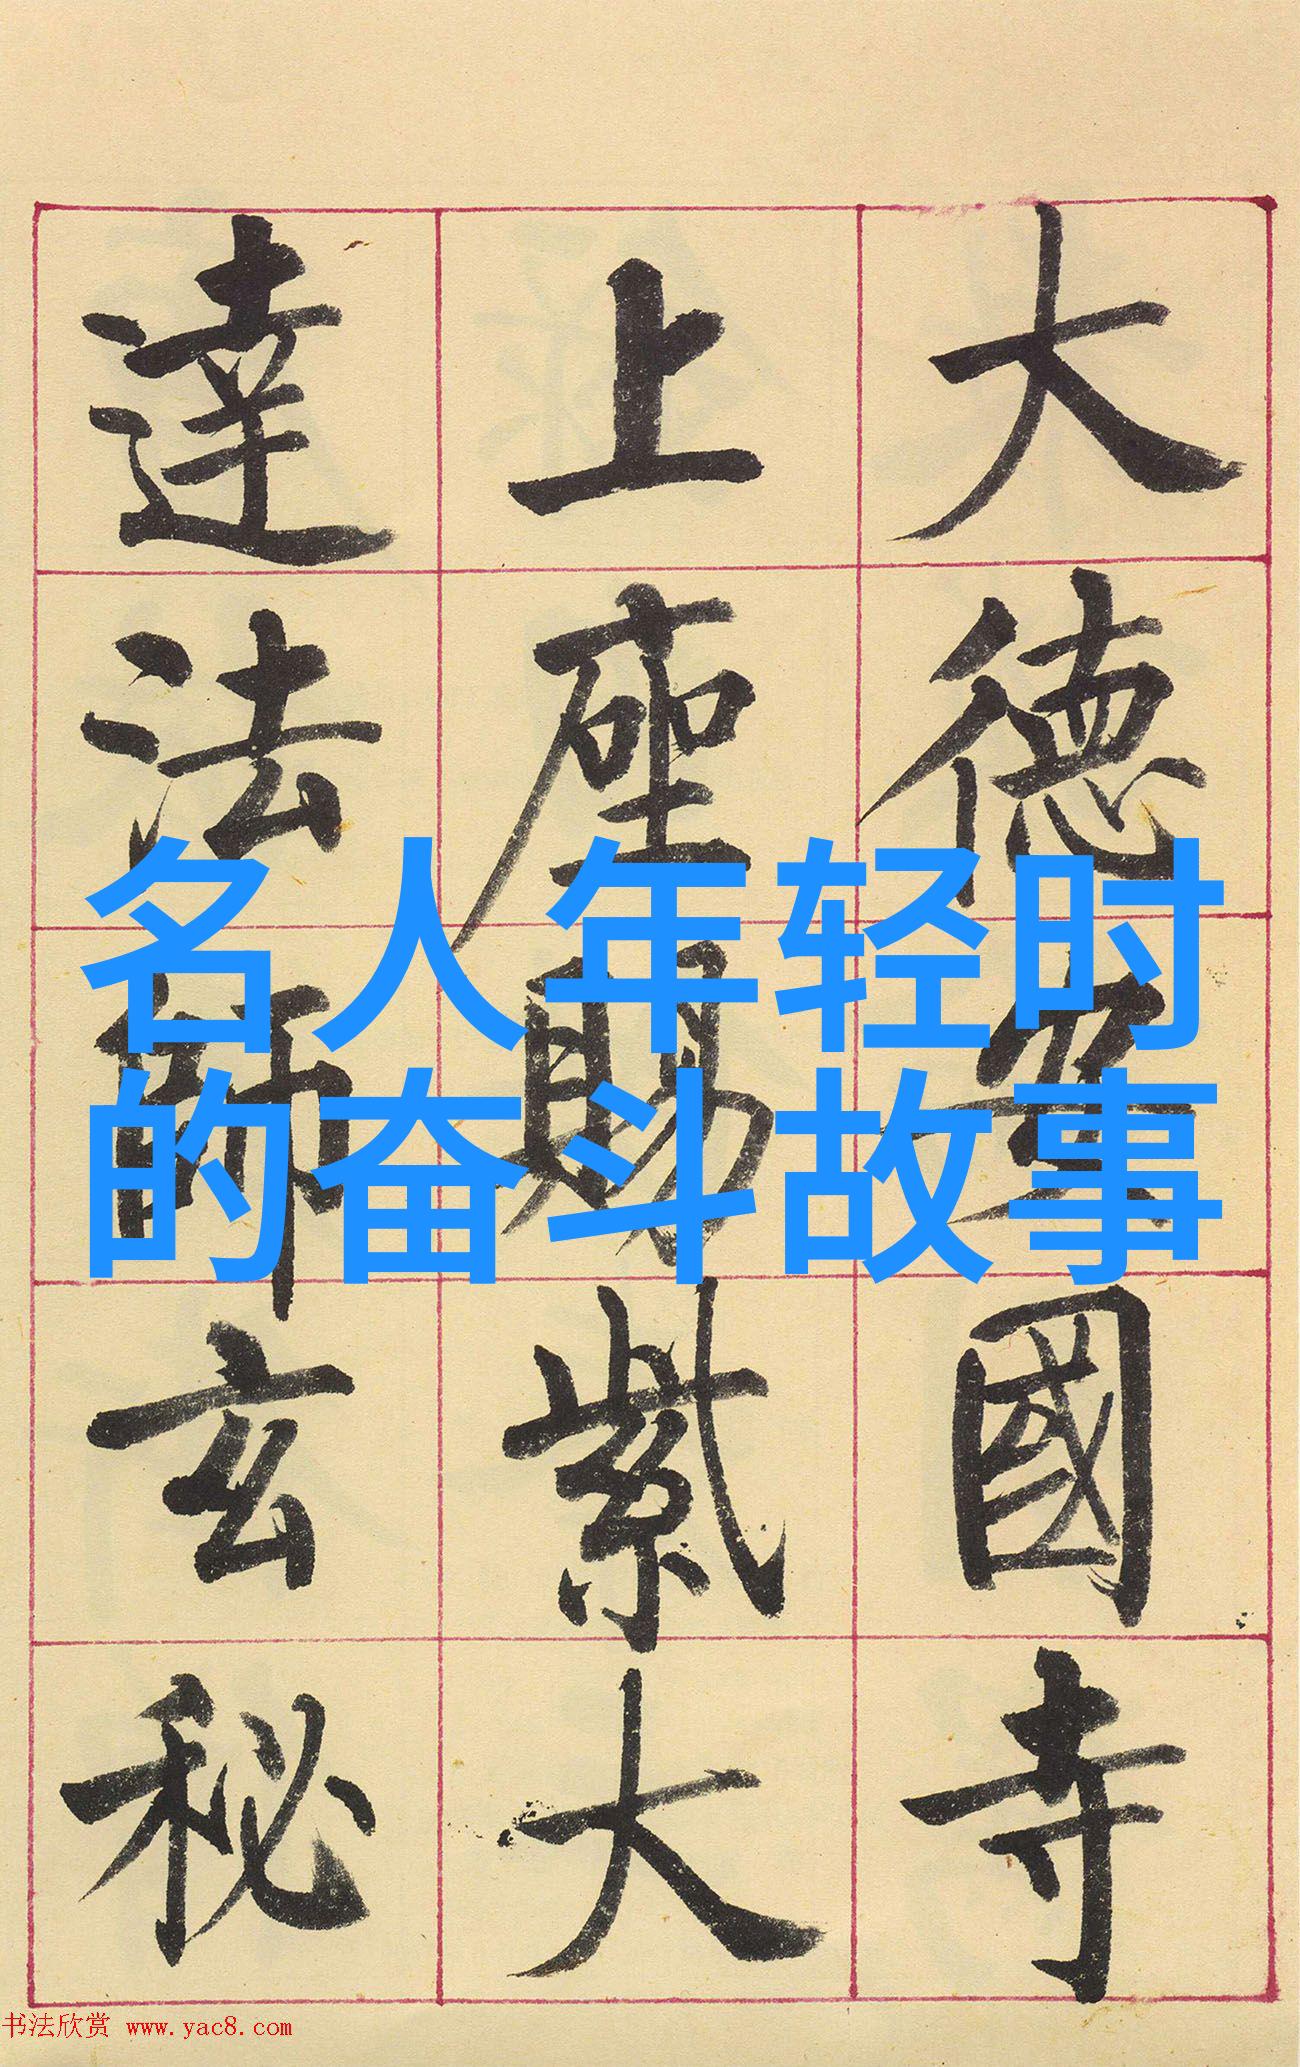 大德安國寺
上座賜紫大
達法師玄秘
名人年轻时
的奋斗故事
书法欣赏 www.yac8.com